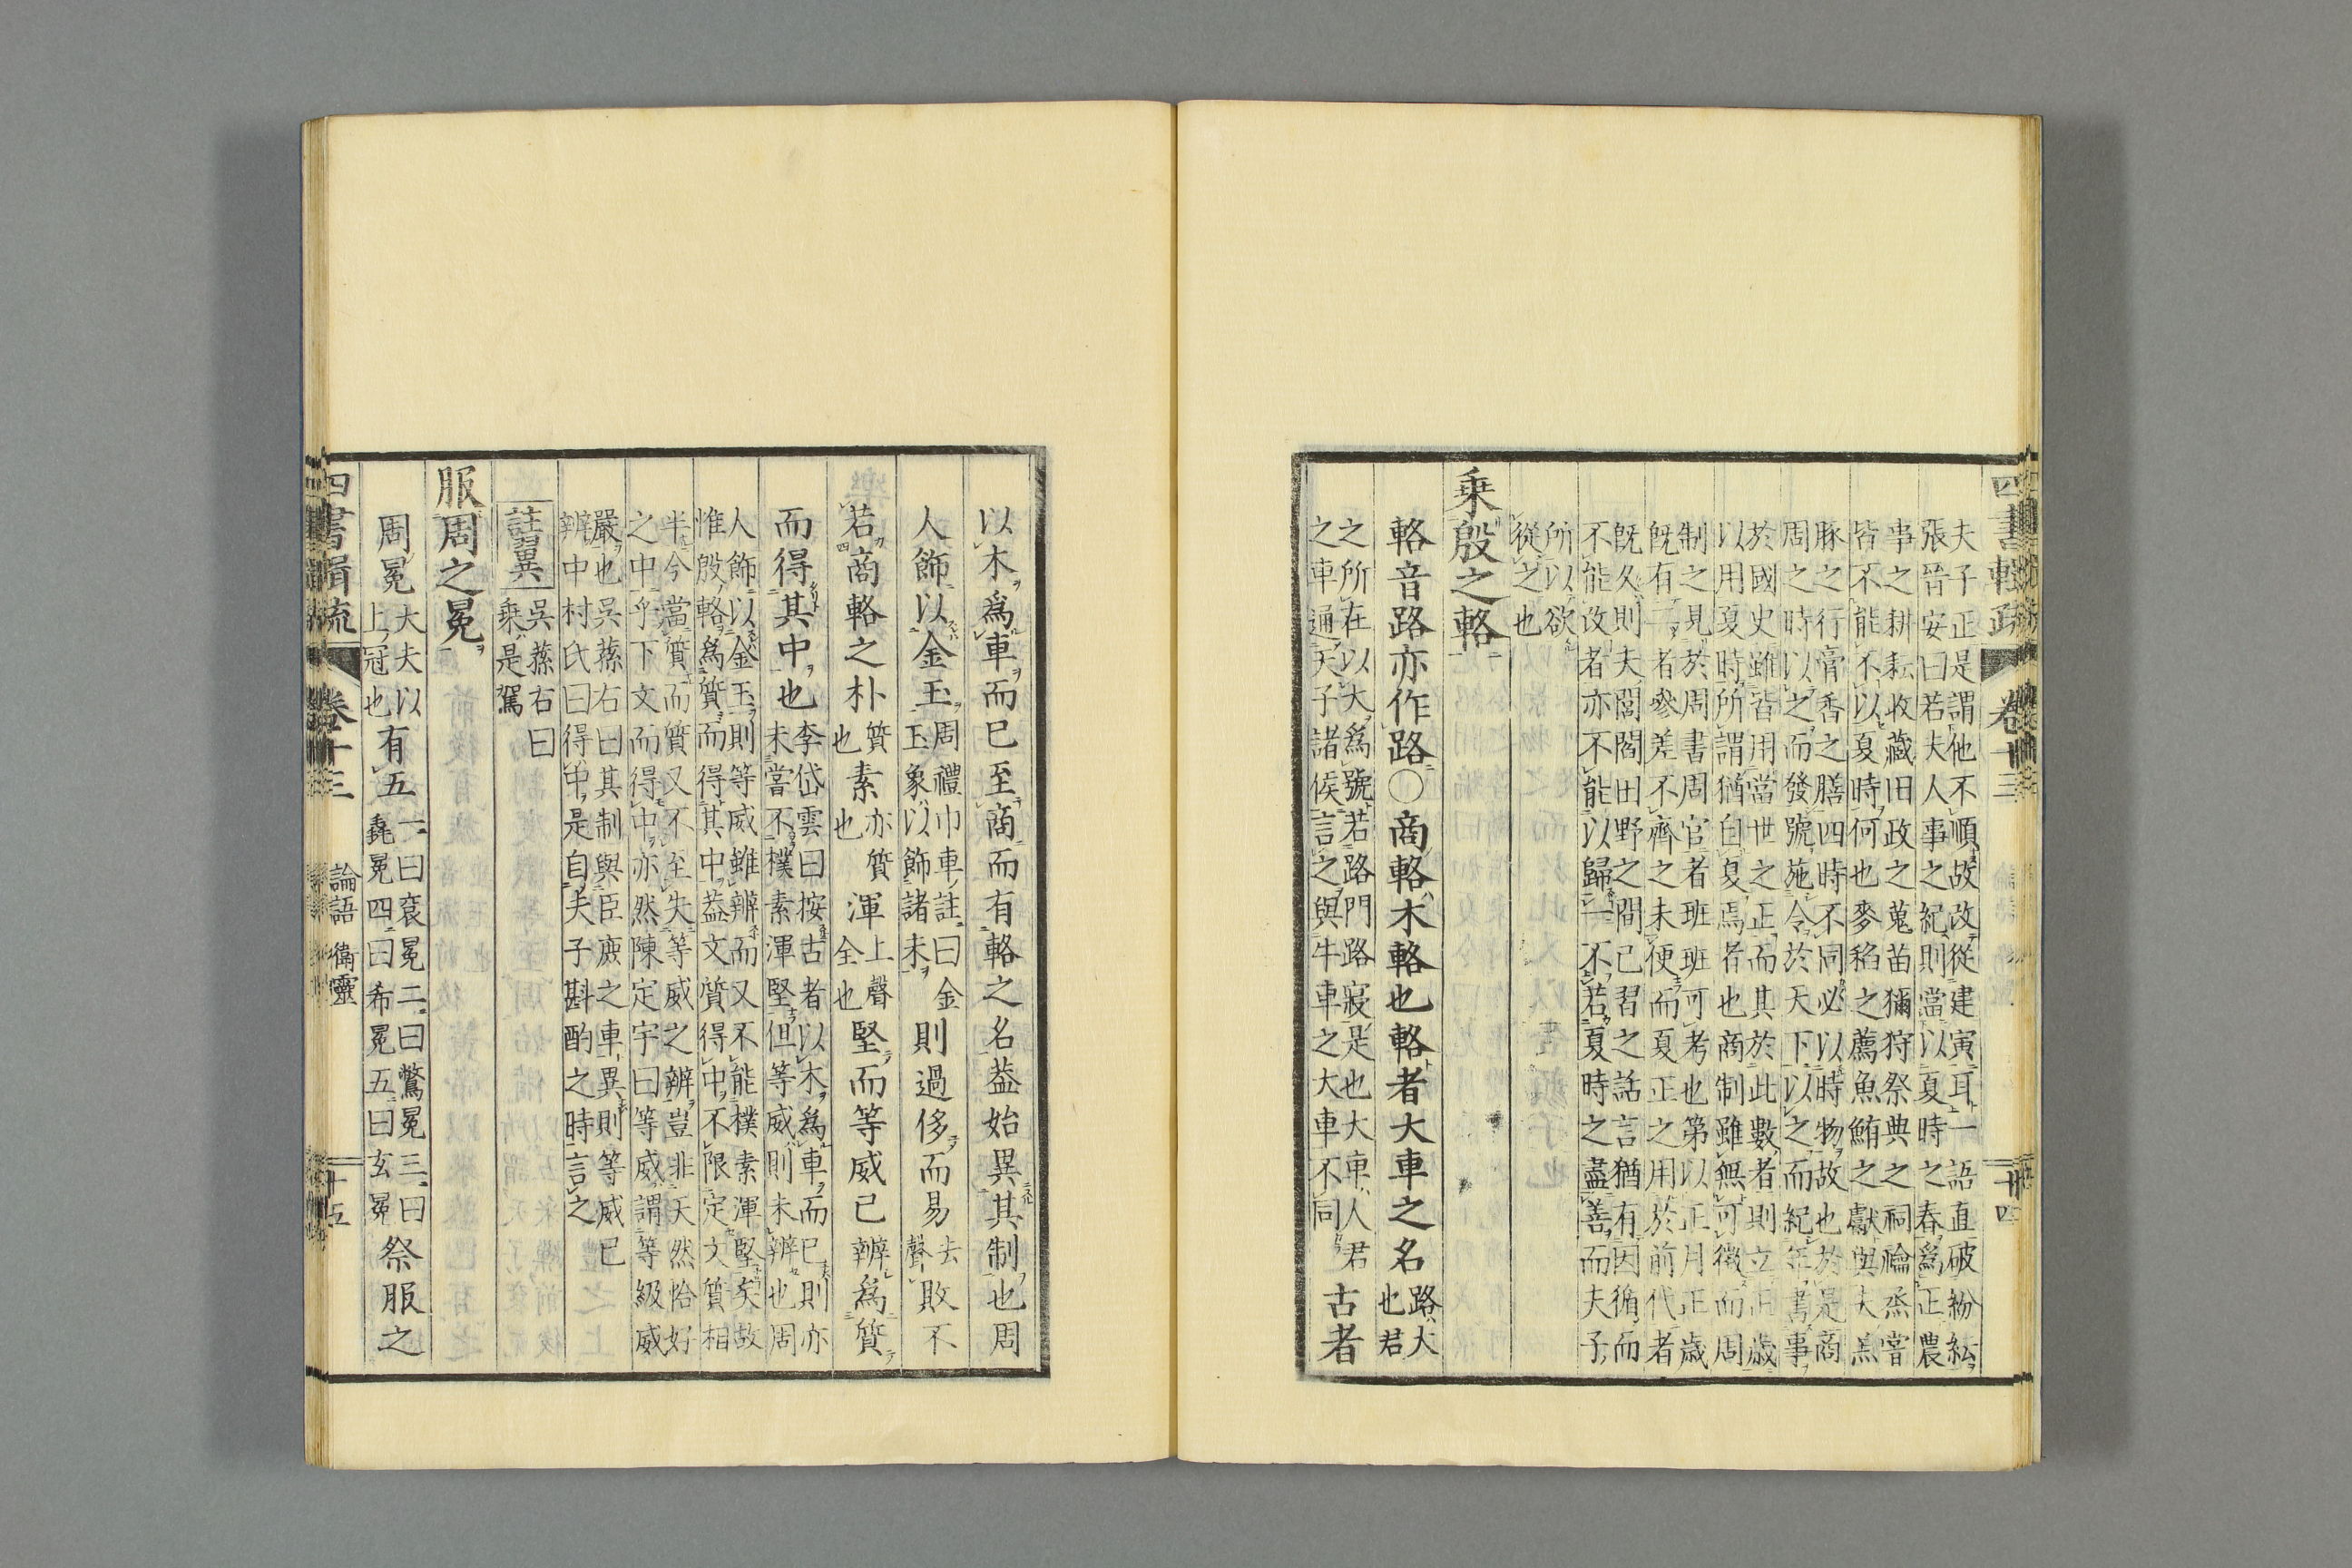 夫子正是謂他不順故改從建寅耳一語直破紛紜
張晉安曰若夫人事之紀則當以夏時之春爲正農
事之耕耘收藏田政之蒐苗獮狩祭典之祠禴烝嘗
皆不能不以夏時何也麥稻之薦魚鮪之獻與夫羔
豚之行膏香之膳四時不同必以時物故也於是商
周之時以之而發號施令於天下以之而紀年書事
於國史雖皆用當世之正而其於此數者則立正歲
以用夏時所謂猶自夏焉者也商制雖無可徵而周
制之見於周書周官者班班可考也第以正月正歲
既有二者參差不齊之未便而夏正之用於前代者
既久則夫閭閻田野之間已習之話言猶有因循而
不能改者亦不能以歸一不若夏時之盡善而夫子
所以欲
從之也
乘殷之輅
輅音路亦作路○商輅木輅也輅者大車之名路大也君
之所在以大爲號若路門路寢是也大車人君
之車通天子諸侯言之與牛車之大車不同
古者
以木爲車而已至商而有輅之名葢始異其制也周
人飾以金玉周禮巾車註曰金玉象以飾諸末則過侈而易去聲敗不
若商輅之朴質素也亦質也渾上聲全也堅而等威已辨爲質
而得其中也李岱雲曰按古者以木爲車而已則亦未嘗不樸素渾堅但等威則未辨也周
人飾以金玉則等威雖辨而又不能樸素渾堅矣故
惟殷輅爲質而得其中葢文質得中不限定文質相
半今當質而質又不至失等威之辨豈非天然恰好
之中乎下文而得中亦然陳定宇曰等威謂等級威
嚴也吳蓀右曰其制與臣庶之車異則等威已
辨中村氏曰得中是自夫子斟酌之時言之
註翼吳蓀右曰乘是駕
服周之冕
周冕大夫以上冠也有五一曰袞冕二曰鷩冕三曰毳冕四曰希冕五曰玄冕祭服之
四書輯疏 卷十三 論語 衞靈 十五
四書輯疏 卷十三 十四